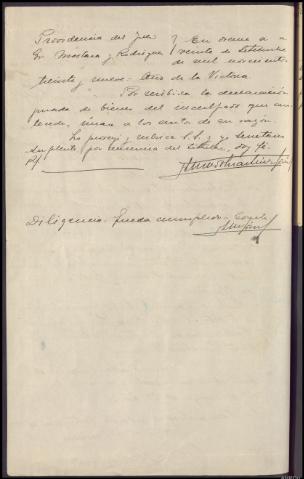 Providencia del Juez } En Orense a
Sr Mostaza y Rodriguez } veinte de Setiembre
de mil novecientos
treinta y nueve - Año de la Victoria
Por recibida la declaración
jurada de bienes del inculpado que
antecede, únase a los autos de su razón.
Lo proveyó y rubrica S.S. y yo Secretario
suplente por ausencia del titular, doy fé.
Diligencia. Queda cumplido.